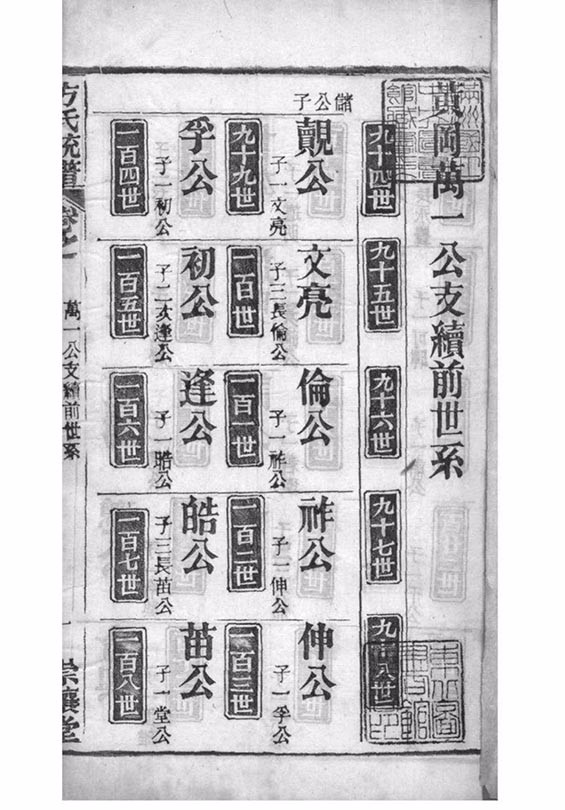 黃岡萬一公支續前世系
九十四世
九十五世
九十六世
九十七世
九十八世
儲公子
覿公
子一文亮
文亮
子三長倫公
倫公
子一祚公
祚公
子一伸公
伸公
子一孚公
九十九世
一百世
一百一世
一百二世
一百三世
孚公
子一初公
初公
子二次逢公
逢公
子一晧公
皓公
子三長苗公
苗公
子一堂公
一百四世
一百五世
一百六世
一百七世
一百八世
方氏統譜
萬一公支續前世系
一
崇讓堂